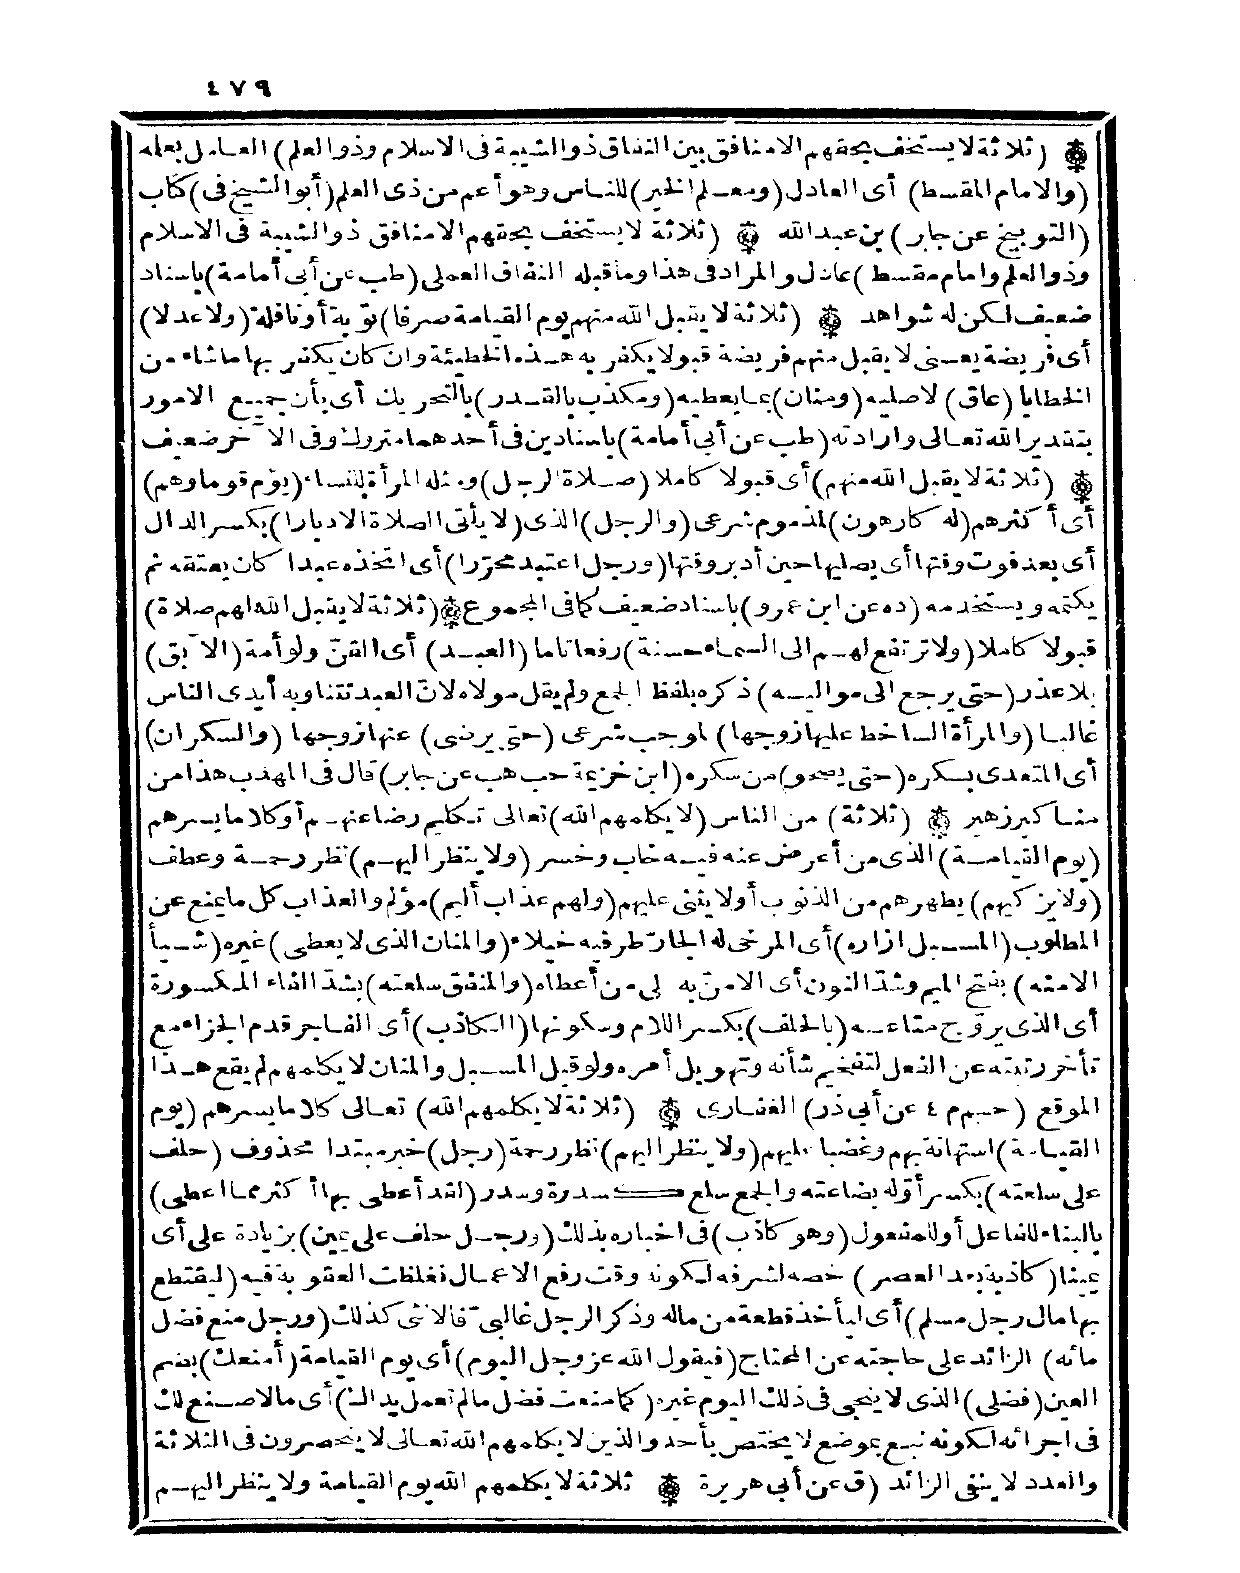 ٤٧٩
(ثلاثة لا يستخف بحقهم الا منافق بين النفاق ذو الشيبة فى الاسلام وذو العلم) العامل بعلمه
(والامام المقسط) أى العادل (ومعلم الخير) للناس وهو أعم من ذى العلم (أبو الشيخ فى) كتاب
(التوبيخ عن جابر) بن عبد الله (ثلاثة لا يستخف بحقهم الا منافق ذو الشيبة فى الاسلام
وذو العلم وامام مقسط) عادل والمراد فى هذا وما قبله النفاق العملى (طب عن أبى أمامة) باسناد
ضعيف لكن له شواهد (ثلاثة لا يقبل الله منهم يوم القيامة صرفا) توبة أو نافلة (ولا عدلا)
أى فريضة يعنى لا يقبل منهم فريضة قبولا يكفر به هذه الخطيئة وان كان يكفر بها ما شاء من
الخطايا (عاق) لاصليه (ومنان) بما يعطيه (ومكذب بالقدر) بالتحريك أى بأن جميع الامور
بتقدير الله تعالى وارادته (طب عن أبى أمامة) باسنادين فى أحدهما متروك وفى الآخر ضعيف
(ثلاثة لا يقبل الله منهم) أى قبولا كاملا (صلاة الرجل) ومثله المرأة للنساء (يؤم قوما وهم)
أى أكثرهم (له كارهون) لمذموم شرعى (والرجل) الذى (لا يأتى الصلاة الا دبارا) بكسر الدال
أى بعد فوت وقتها أى يصليها حين أدبر وقتها (ورجل اعتبد محررا) أى اتخذه عبدا كان يعتقه ثم
يكتمه ويستخدمه (د ه عن ابن عمرو) باسناد ضعيف كما فى المجموع (ثلاثة لا يقبل الله لهم صلاة)
قبولا كاملا (ولا ترتفع لهم الى السماء حسنة) رفعا تاما (العبد) أى القن ولو أمة (الآبق)
بلا عذر (حتى يرجع الى مواليه) ذكره بلفظ الجمع ولم يقل مولاه لان العبد تتناوبه أيدى الناس
غالبا (والمرأة الساخط عليها زوجها) لموجب شرعى (حتى يرضى) عنها زوجها (والسكران)
أى المتعدى بسكره (حتى يصحو) من سكره (ابن خزيمة حب هب عن جابر) قال فى المهذب هذا من
مناكير زهير (ثلاثة) من الناس (لا يكلمهم الله) تعالى تكليم رضا عنهم أو كلاما يسرهم
(يوم القيامة) الذى من أعرض عنه فيه خاب وخسر (ولا ينظر اليهم) نظر رحمة وعطف
(ولا يزكيهم) يطهرهم من الذنوب أو لا يثنى عليهم (ولهم عذاب أليم) مؤلم والعذاب كل ما يمنع عن
المطلوب (المسبل ازاره) أى المرخى له الجار طرفيه خيلاء (والمنان الذى لا يعطى) غيره (شيأ
الا منه) بفتح الميم وشد النون أى الا من به على من أعطاه (والمنفق سلعته) بشد الفاء المكسورة
أى الذى يروج متاعه (بالحلف) بكسر اللام وسكونها (الكاذب) أى الفاجر قدم الجزاء مع
تأخر رتبته عن الفعل لتفخيم شأنه وتهويل أمره ولو قيل المسبل والمنان لا يكلمهم لم يقع هذا
الموقع (حم م ٤ عن أبى ذر) الغفارى (ثلاثة لا يكلمهم الله) تعالى كلاما يسرهم (يوم
القيامة) استهانة بهم وغضبا عليهم (ولا ينظر اليهم) نظر رحمة (رجل) خبر مبتدا محذوف (حلف
على سلعته) بكسر أوله بضاعته والجمع سلع كسدرة وسدر (لقد أعطى بها أكثر مما أعطى)
بالبناء للفاعل أو للمفعول (وهو كاذب) فى اخباره بذلك (ورجل حلف على يمين) بزيادة على أى
يمينا (كاذبة بعد العصر) خصه لشرفه لكونه وقت رفع الاعمال فغلظت العقوبة فيه (ليقتطع
بها مال رجل مسلم) أى ليأخذ قطعة من ماله وذكر الرجل غالبى فالانثى كذلك (ورجل منع فضل
مائه) الزائد على حاجته عن المحتاج (فيقول الله عز وجل اليوم) أى يوم القيامة (أمنعك) بضم
العين (فضلى) الذى لا ينجى فى ذلك اليوم غيره (كما منعت فضل ما لم تعمل يداك) أى ما لا صنع لك
فى اجرائه لكونه نبع بموضع لا يختص بأحد والذين لا يكلمهم الله تعالى لا ينحصرون فى الثلاثة
والعدد لا ينفى الزائد (ق عن أبى هريرة ثلاثة لا يكلمهم الله يوم القيامة ولا ينظر اليهم